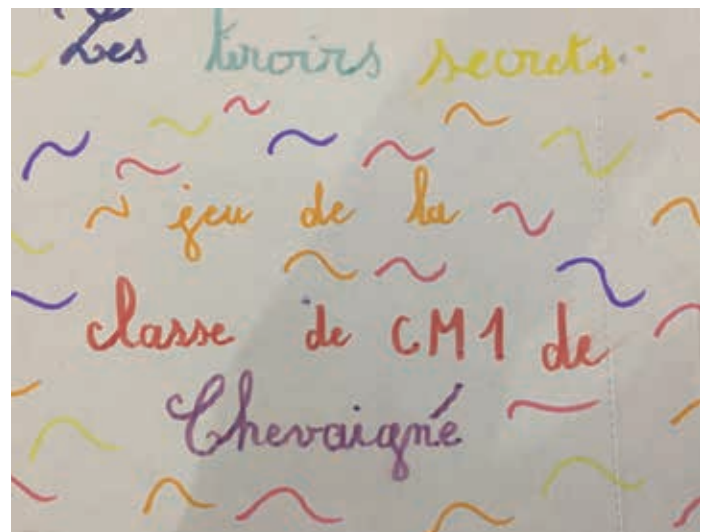 Les tiroirs secrets :
jeu de la
classe de CM1 de
Chevaigné